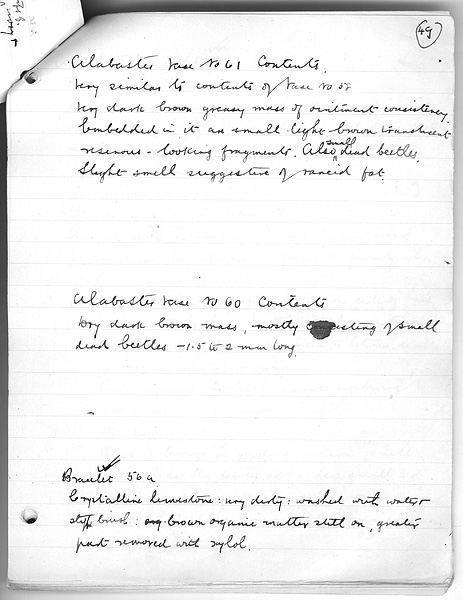 49
Alabaster Vase No 61 Contents.
Very similar to contents of Vase No 58
Very dark brown greasy mass of ointment consistency.
Embedded in it are small light brown translucent
resinous-looking fragments. Also small dead beetles.
Slight smell suggestive of rancid fat.
Alabaster Vase No 60 Contents
Very dark brown mass, mostly consisting of small
dead beetles - 1.5 to 2 mm long.
Bracelet 56a
Crystalline limestone: very dirty: washed with water
stiff brush: org brown organic matter still on, greater
part removed with xylol.